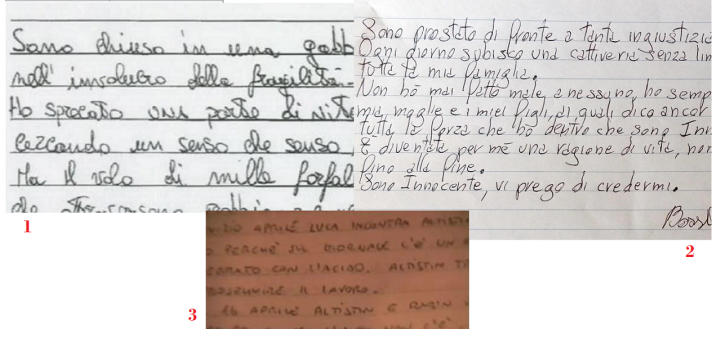 Sono chiuso in una gabb
nell' involucro della fragilità.
Ho sprecato una parte di vita
cercando un senso che senso
Ma il volo di mille farfal
1
Sono prostato di fronte a tanta ingiustizia
Ogni giorno subisco una cattiveria senza lim
tutta la mia famiglia.
Non hò mai fatto male a nessuno, ho semp
mia moglie e i miei figli, ai quali dico ancor
tutta la forza che hò dentro che sono Inn
È diventata per me una ragione di vita, non
fino alla fine.
Sono Innocente, vi prego di credermi.
Boss
2
APRILE LUCA INCONTRA ALTISTI
PERCHÈ SUL GIORNALE C'È UN
CON L'ACIDO. ALTISTIN
IL LAVORO.
16 APRILE ALTISTIN E
3